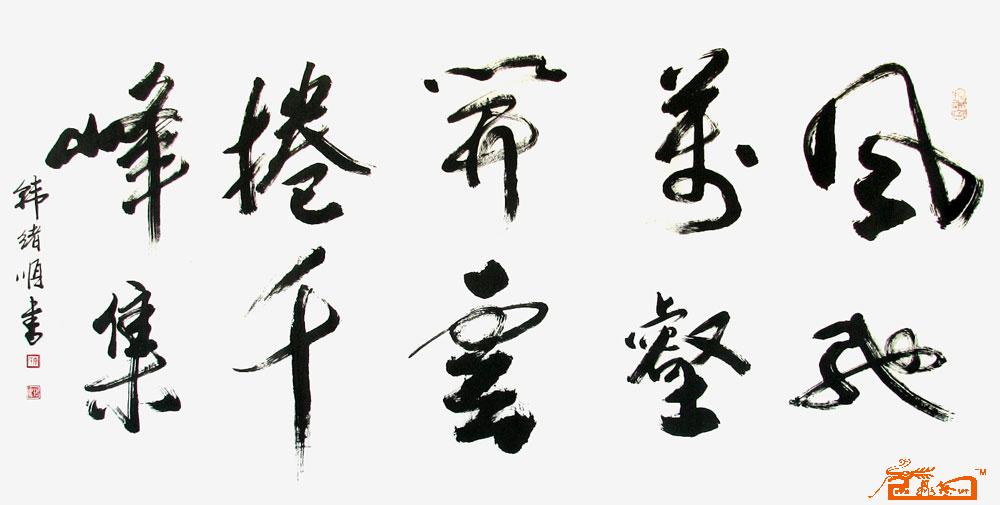 風馳
萬壑
開雲
捲千
峰集
韩绪顺书